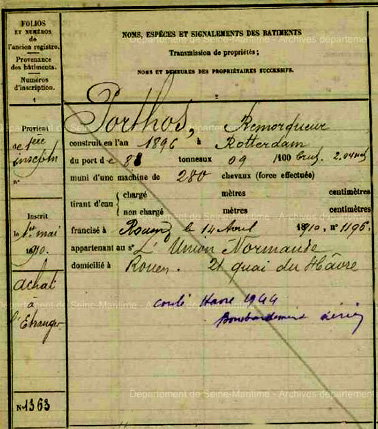 FOLIOS
ET NUMÉROS
de
l'ancien registre.
Provenance
des bâtiments.
Numéros
d'inscription.
1
NOMS, ESPÈCES ET SIGNALEMENTS DES BÂTIMENTS
Transmission de propriétés ;
NOMS ET DEMEURES DES PROPRIÉTAIRES SUCCESSIFS.
2
Provient
de 1ère
inscript.on
n°
Porthos, Remorqueur
construit en l'an 1896 à Rotterdam
du port de 88 tonneaux 09 /100
muni d'une machine de 280 chevaux (force effectuée)
tirant d'eau
chargé mètres centimètres
non chargé mètres centimètres
Inscrit
le 1er mai
1910.
francisé à Rouen le 14 Avril 1910. n° 1196.
appartenant au sr L'Union Normande
domicilié à Rouen. 21 quai du Hâvre
Achat
à
l'Etranger
coulé Havre 1944
Bombardement aérien
N° 1363
Département de Seine-Maritime - Archives départementales